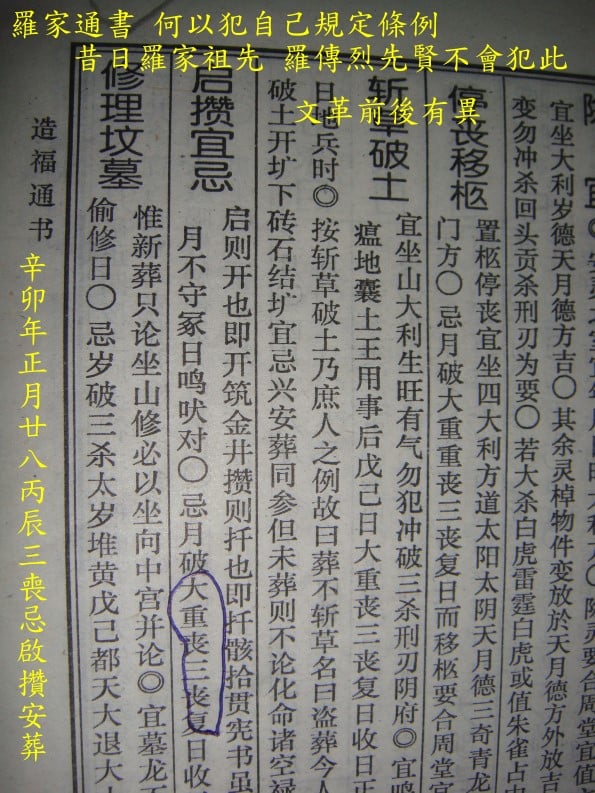 羅家通書 何以犯自己規定條例
昔日羅家祖先 羅傳烈先賢不會犯此
文革前後有異
宜坐大利岁德天月德方吉〇其余灵棹物件变放於天月德方外放吉
变勿冲杀回头贡杀刑刃为要〇若大杀白虎雷霆白虎或值朱雀占中
停丧移柩
置柩停丧宜坐四大利方道太阳太阴天月德三奇青龙
门方〇忌月破大重重丧三丧复日而移柩要合周堂宜
斩草破土
宜坐山大利生旺有气勿犯冲破三杀刑刃阴府〇宜鸣
瘟地囊土王用事后戊己日大重丧三丧复日收日正
日地兵时◎按斩草破土乃庶人之例故曰葬不斩草名曰盗葬今人
破土开圹下砖石结圹宜忌兴安葬同参但未葬则不论化命诸空禄
启攒宜忌
启则开也即开筑金井攒则扦也即扦骸拾贯宪书虽
月不守冢日鸣吠对〇忌月破大重丧三丧复日收
修理坟墓
惟新葬只论坐山修必以坐向中宫并论◎宜墓龙
偷修日〇忌岁破三杀太岁堆黄戊己都天大退大
造福通书
辛卯年正月廿八丙辰三喪忌啟攢安葬